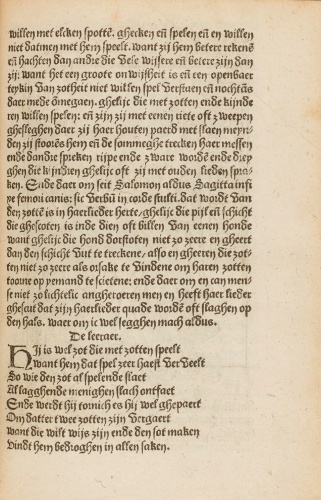 willen met elcken spottē. ghecken eñ spelen eñ en willen
niet datmen met hem speelt. want zij hem betere rekenē
eñ hachten dan andre die vele wijsere eñ betere zijn dan
zij: want het een groote onwijsheit is eñ een openbaer
teykin van zotheit niet willen spel verstaen eñ nochtās
daer mede ōmegaen. ghelijc die met zotten ende kijnde
ren willen spelen: eñ zijn zij met eenen riete oft zweepen
ghesleghen daer zij haer houten paerd met slaen meyn-
den zij stoorēs hem eñ de sommeghe trecken haer messen
ende dandre spreken rijpe ende zware wordē ende drey
ghen die kijndren ghelijc oft zij met ouden lieden spra-
ken. Ende daer om seit Salomon aldus Sagitta infi
xe femori canis: sic verbū in corde stulti. dat wordt van
den zottē is in haerlieder herte/ghelijc die pijl eñ schicht
die gheschoten is inde dien oft billen van eenen honde
want ghelijc die hond dorstoten niet zo zeere en gheert
dan den schicht vut te treckene/also en gheeren die zot-
ten niet zo zeere als orsake te vindene om haren zotten
toorne op yemand te scietene: ende daer om en can men-
se niet zo lichtelic anghcroeren men en heeft haer lieder
ghesaut dat zijn haerlieder quade wordē oft slaghen op
den hals. waer om ic wel segghen mach aldus.
De leeraer.
Hij is wel zot die met zotten speelt
want hem dat spel zeer haest verveelt
So wie den zot al spelende slaet
Al lagghende menighen slach ontfaet
Ende werdt hij tornich es hij wel ghepaert
Om datter twee zotten zijn vergaert
want die wilt wijs zijn ende den sot maken
vindt hem bedroghen in allen saken.